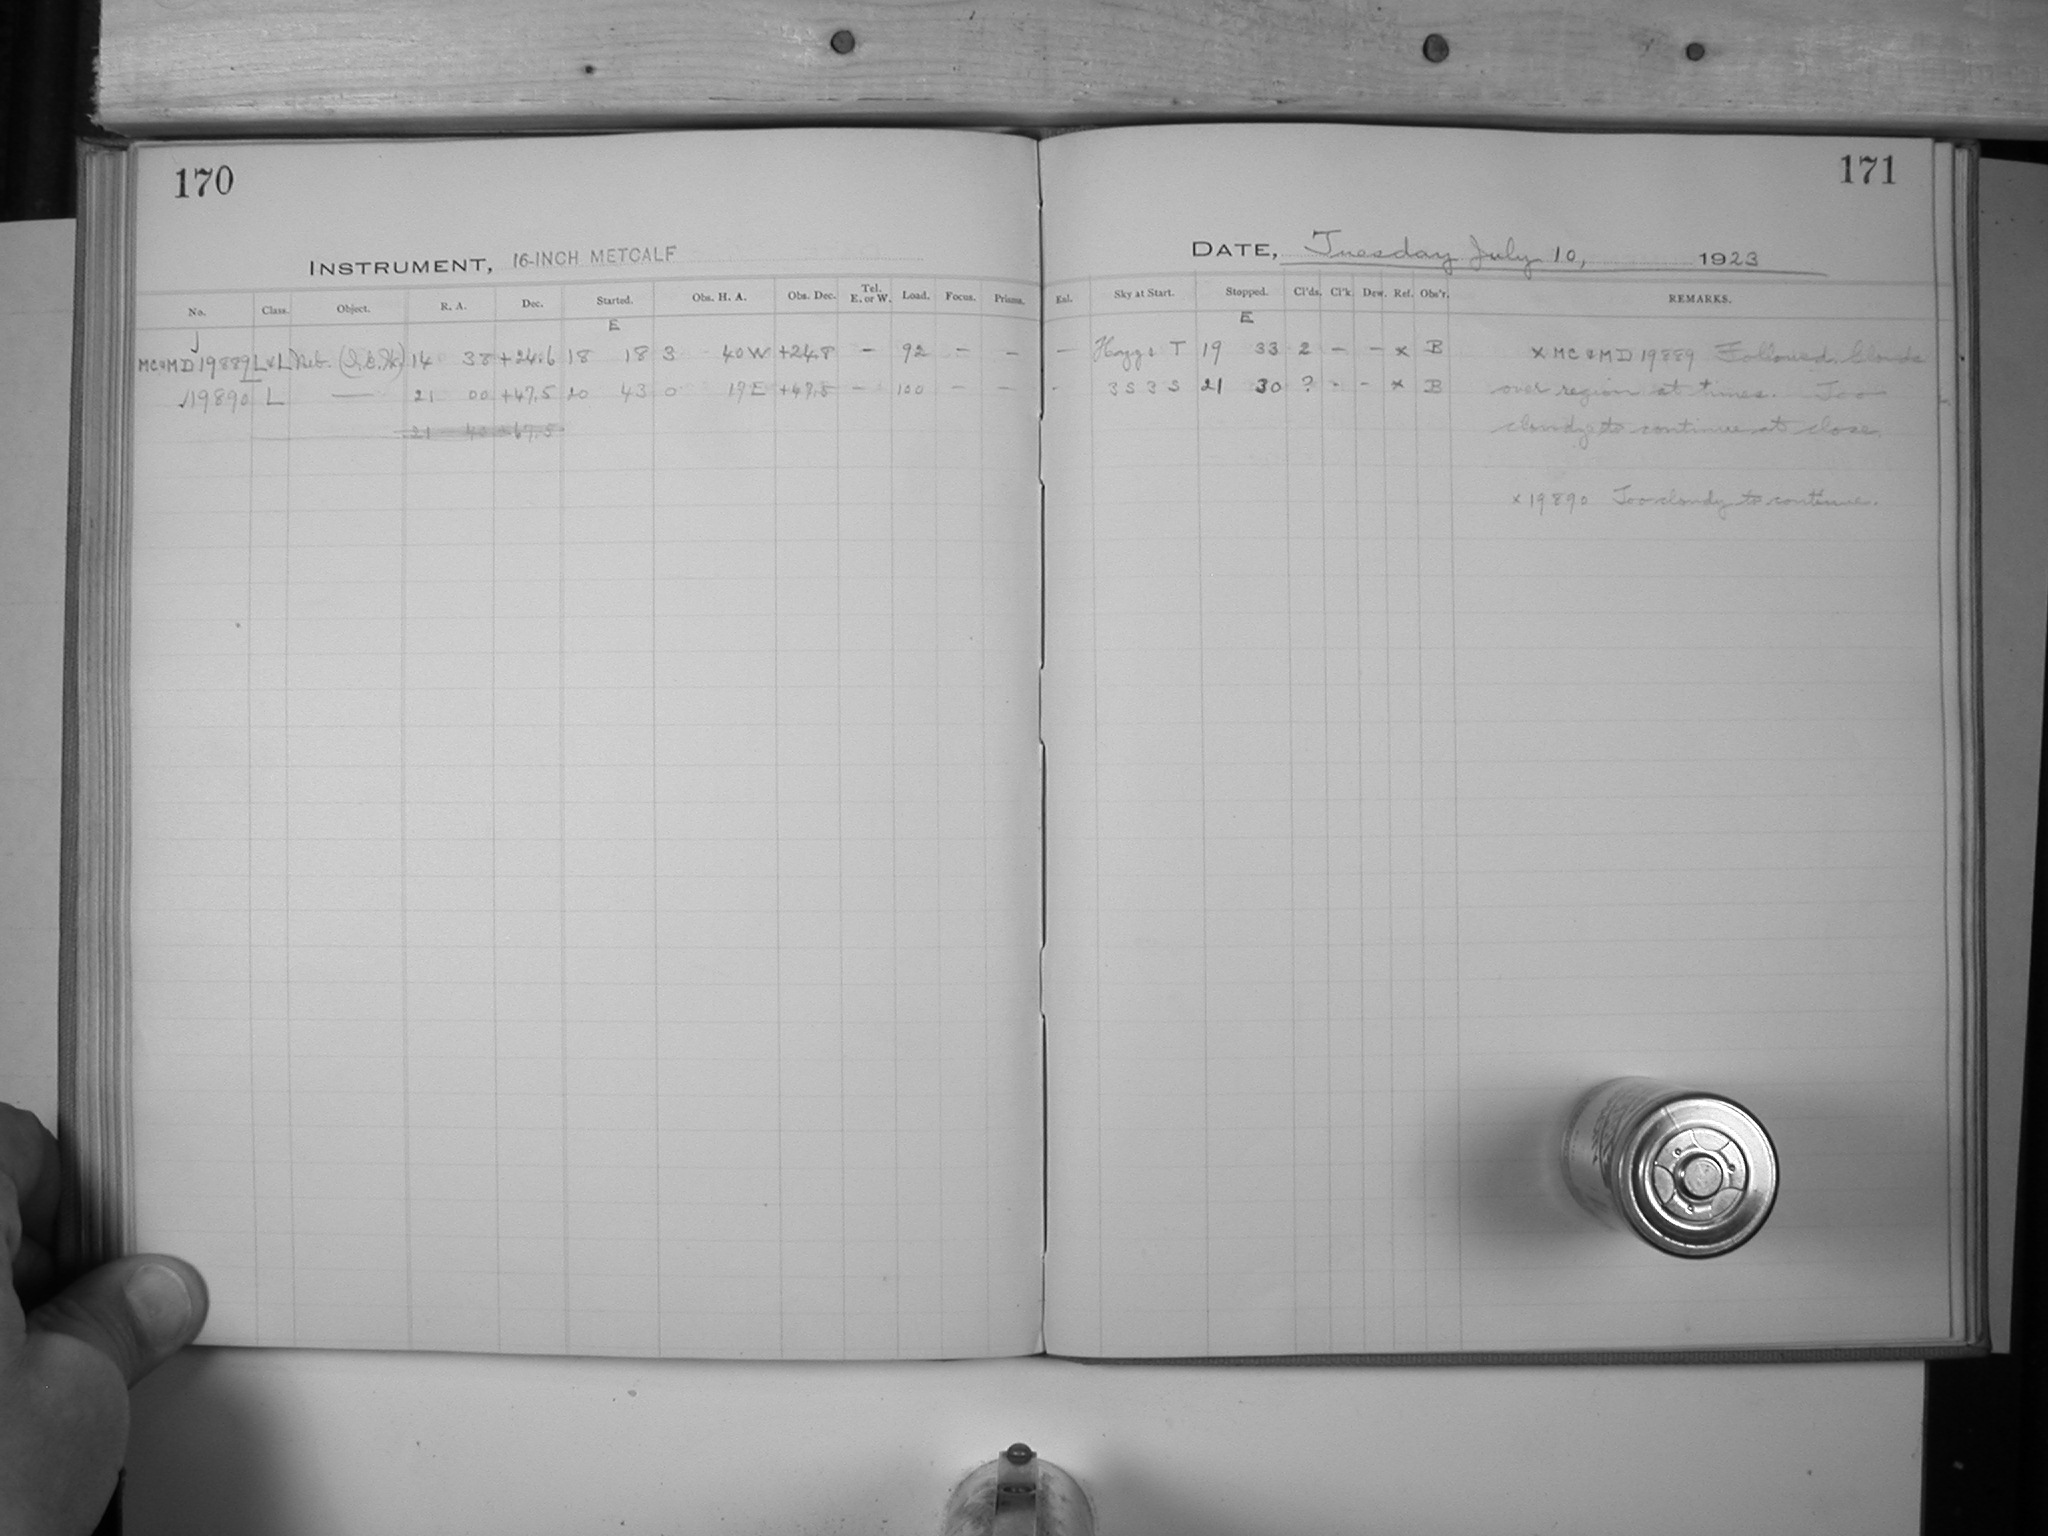 170
171
INSTRUMENT, 16-INCH METCALF
DATE, Tuesday July 10, 1923
No. Class. Object. R. A. Dec. Started. Obs. H. A. Obs. Dec. Tel. E. or W. Load. Focus. Prisms. Exl. Sky at Start. Stopped. Cl'ds. Cl'k. Dew. Rel. Obs'r. REMARKS.
E E
MC&MD 19889 L&L Neb. 14 38 +24.6 18 18 3 40 W +24.8 – 92 – – – T 19 33 2 – – x B x MC & MD 19889 Followed. Clouds
√19890 L — 21 00 +47.5 20 43 0 17 E +47.5 – 100 – – - 3 S 3 S 21 30 ? - - x B over region at times. Too
21 40 +67.5 cloudy to continue at close.
x 19890 Too cloudy to continue.